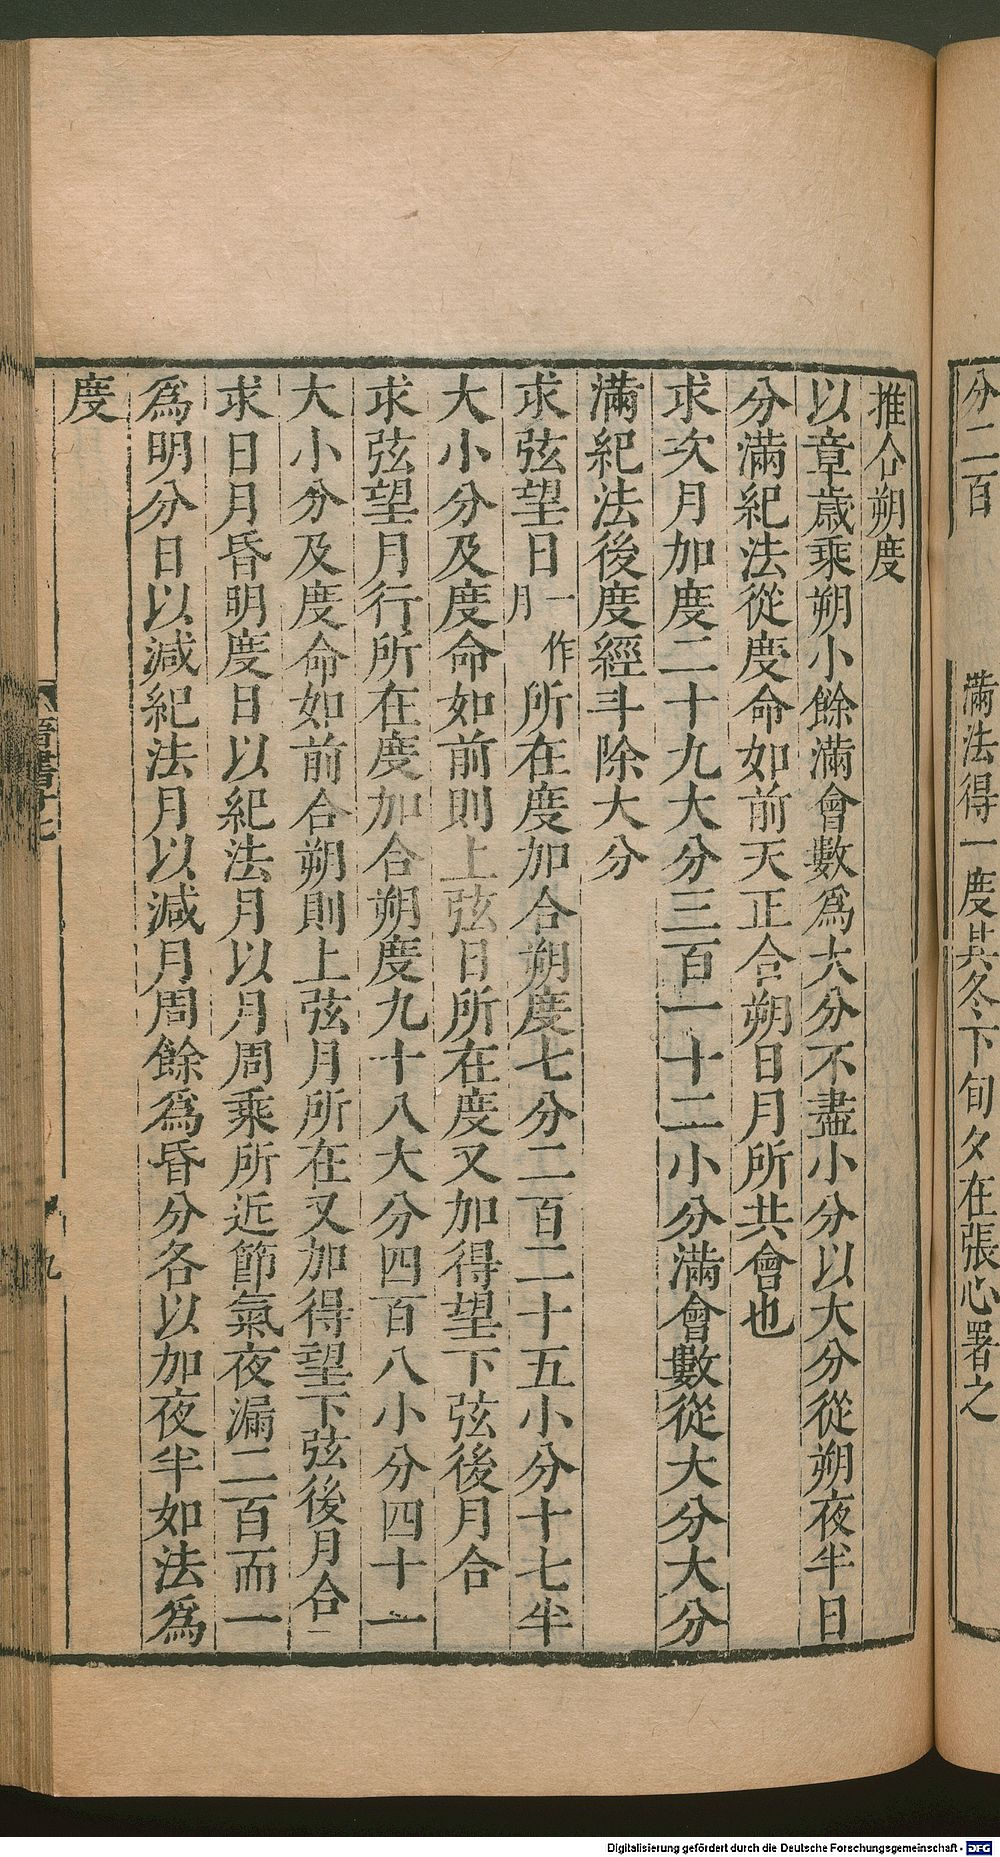 分二百
滿法得一度其冬下旬夕在張心署之
推合朔度
以章歲乘朔小餘滿會數爲大分不盡小分以大分從朔夜半日
分滿紀法從度命如前天正合朔日月所共會也
求次月加度二十九大分三百一十二小分滿會數從大分大分
滿紀法後度經斗除大分
求弦望日一作月所在度加合朔度七分二百二十五小分十七半
大小分及度命如前則上弦日所在度又加得望下弦後月合
求弦望月行所在度加合朔度九十八大分四百八小分四十一
大小分及度命如前合朔則上弦月所在又加得望下弦後月合
求日月昏明度日以紀法月以月周乘所近節氣夜漏二百而一
爲明分日以減紀法月以減月周餘爲昏分各以加夜半如法爲
度
晉書十七
九
Digitalisierung gefördert durch die Deutsche Forschungsgemeinschaft - DFG